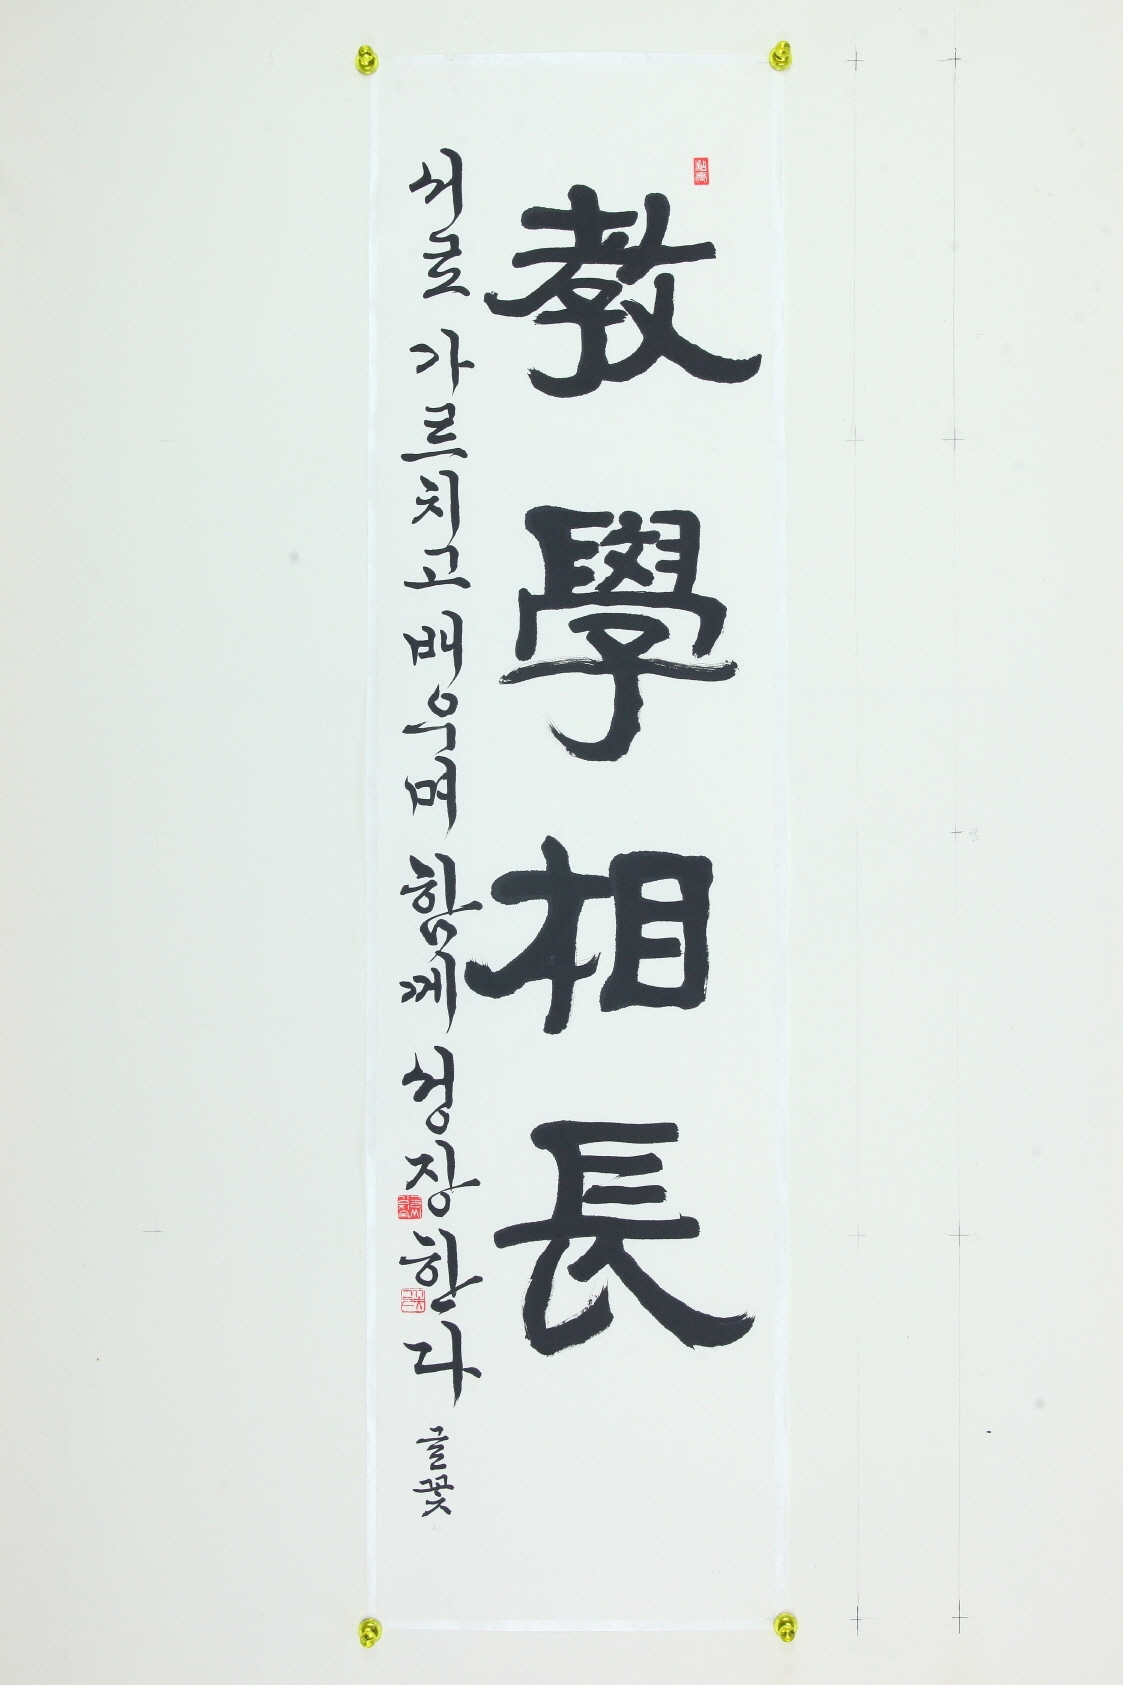 教學相長
서로 가르치고 배우며 함께 성장한다
글꽃